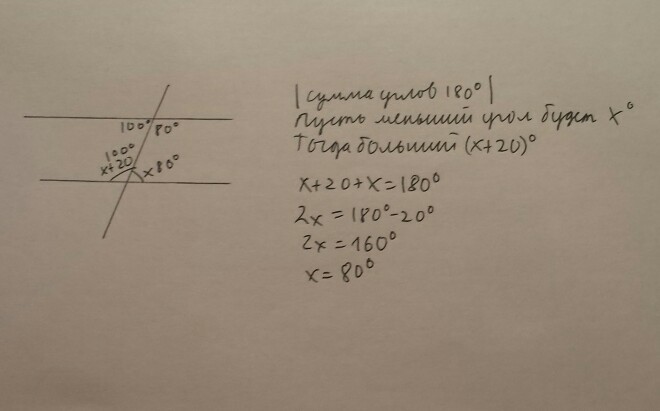 |сумма углов 180°|
Пусть меньший угол будет x°
Тогда больший (x+20)°
x+20+x=180°
2x=180°-20°
2x=160°
x=80°
100° 80°
100°
x+20 x 80°